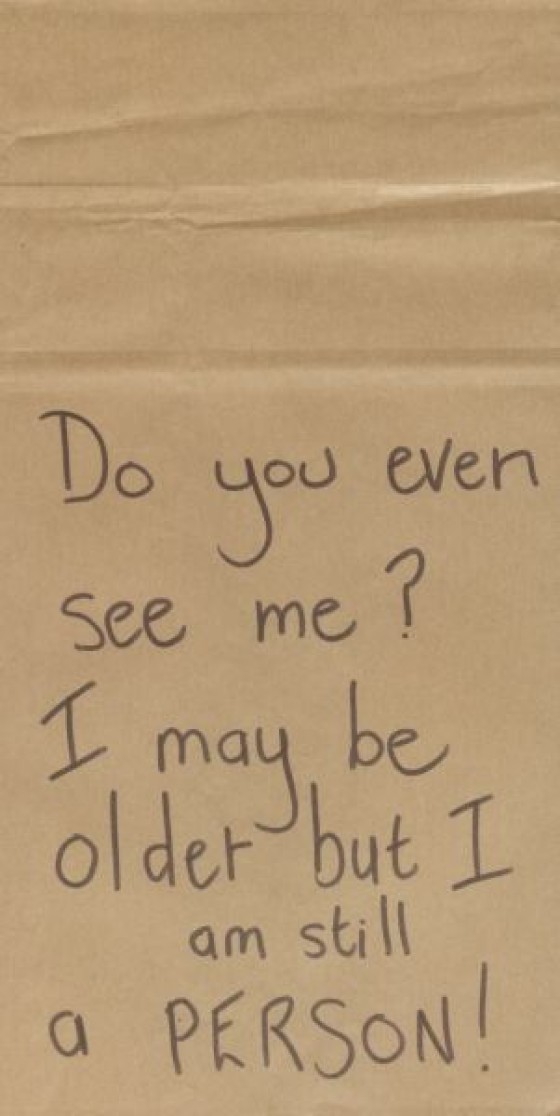 Do you even
see me?
I may be
older but I
am still
a PERSON!